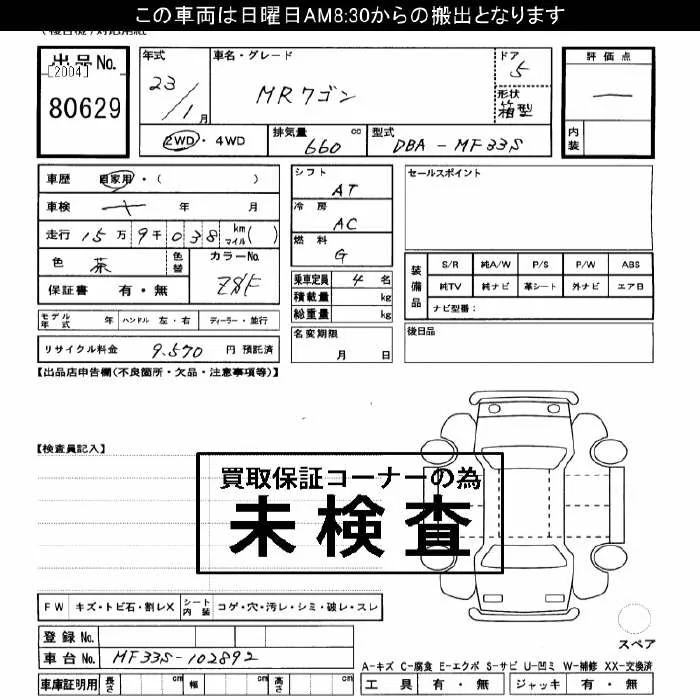 この車両は日曜日AM8:30からの搬出となります
出品No.
[2004]
80629
年式
23/1月
車名・グレード
MRワゴン
ドア
5
形状
箱型
評価点
—
内装
2WD・4WD
排気量 660 cc
型式 DBA-MF33S
車歴 自家用・( )
車検 年 月
走行 15万9千038 km マイル( )
色 茶
色替
カラーNo. Z8F
保証書 有・無
シフト
AT
冷房
AC
燃料
G
乗車定員 4 名
積載量 kg
総重量 kg
セールスポイント
装備品
S/R 純A/W P/S P/W ABS
純TV 純ナビ 革シート 外ナビ エアB
ナビ型番:
モデル年式 年 ハンドル 左・右 ディーラー・並行
名変期限
月 日
後日品
リサイクル料金 9.570 円 預託済
【出品店申告欄(不良箇所・欠品・注意事項等)】
【検査員記入】
買取保証コーナーの為
未検査
FW キズ・トビ石・割レX シート内装 コゲ・穴・汚レ・シミ・破レ・スレ
登録No.
車台No. MF33S-102892
車庫証明用 長さ cm 幅 cm 高さ cm
スペア
A-キズ C-腐食 E-エクボ S-サビ U-凹ミ W-補修 XX-交換済
工具 有・無 ジャッキ 有・無